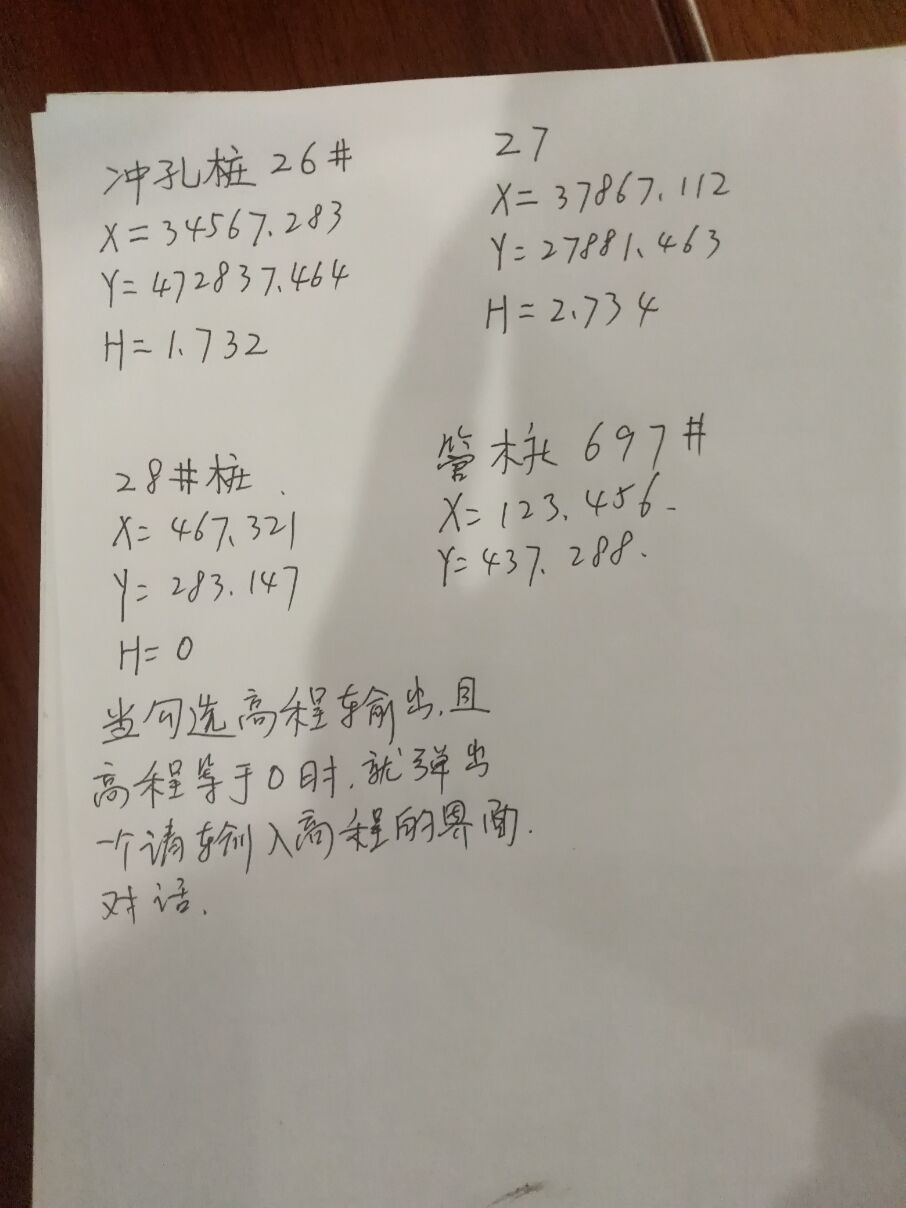 冲孔桩 26#
X=34567.283
Y=472837.464
H=1.732
27
X=37867.112
Y=27881.463
H=2.734
28#桩.
X=467.321
Y=283.147
H=0
管桩 697#
X=123.456.
Y=437.288.
当勾选高程输出,且
高程等于0时.就弹出
一个请输入高程的界面.
对话.